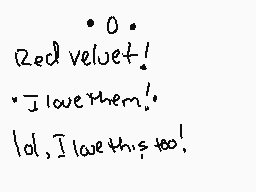 • O •
Red velvet!
• I love them! •
lol, I love this too!